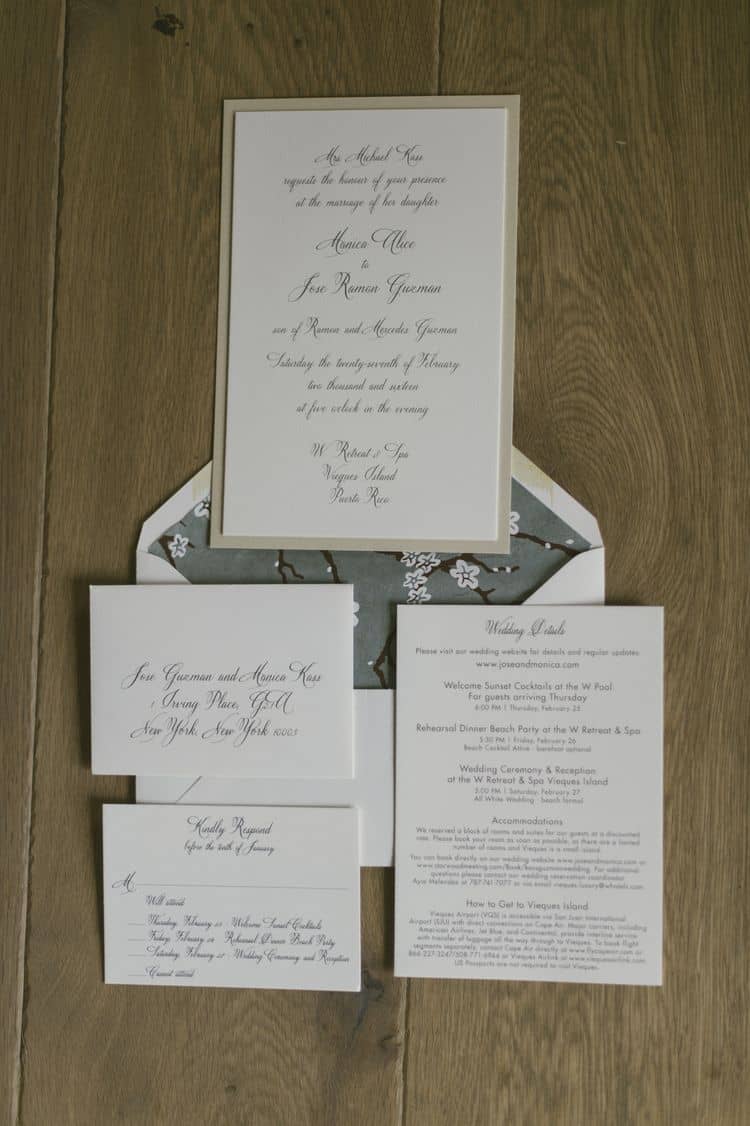 Mrs Michael Kass
requests the honour of your presence
at the marriage of her daughter
Monica Alice
to
Jose Ramon Guzman
son of Ramon and Mercedes Guzman
Saturday the twenty-seventh of February
two thousand and sixteen
at five o'clock in the evening
W Retreat & Spa
Vieques Island
Puerto Rico
Jose Guzman and Monica Kass
1 Irving Place,
New York, New York 10003
Kindly Respond
before the tenth of January
M
Will attend
Thursday, February 25 - Welcome Sunset Cocktails
Friday, February 26 - Rehearsal Dinner Beach Party
Saturday, February 27 - Wedding Ceremony and Reception
Cannot attend
Wedding Details
Please visit our wedding website for details and regular updates
www.joseandmonica.com
Welcome Sunset Cocktails at the W Pool
For guests arriving Thursday
6:00 PM | Thursday, February 25
Rehearsal Dinner Beach Party at the W Retreat & Spa
5:30 PM | Friday, February 26
Beach Cocktail Attire - barefoot optional
Wedding Ceremony & Reception
at the W Retreat & Spa Vieques Island
5:00 PM | Saturday, February 27
All White Wedding - beach formal
Accommodations
We reserved a block of rooms and suites for our guests at a discounted
rate. Please book your room as soon as possible, as there are a limited
number of rooms and Vieques is a small island.
You can book directly on our wedding website www.joseandmonica.com or
www.starwoodmeeting.com/Book/kassguzmanwedding. For additional
questions please contact our wedding reservation coordinator
Ayia Melendez at 787-741-7077 or via email vieques.luxury@whotels.com
How to Get to Vieques Island
Vieques Airport (VQS) is accessible via San Juan International
Airport (SJU) with direct connections on Cape Air. Major carriers, including
American Airlines, Jet Blue, and Continental, provide interline service
with transfer of luggage all the way through to Vieques. To book flight
segments separately, contact Cape Air directly at www.flycapeair.com or
866-227-3247/508-771-6944 or Vieques Airlink at www.viequesairlink.com
US Passports are not required to visit Vieques.